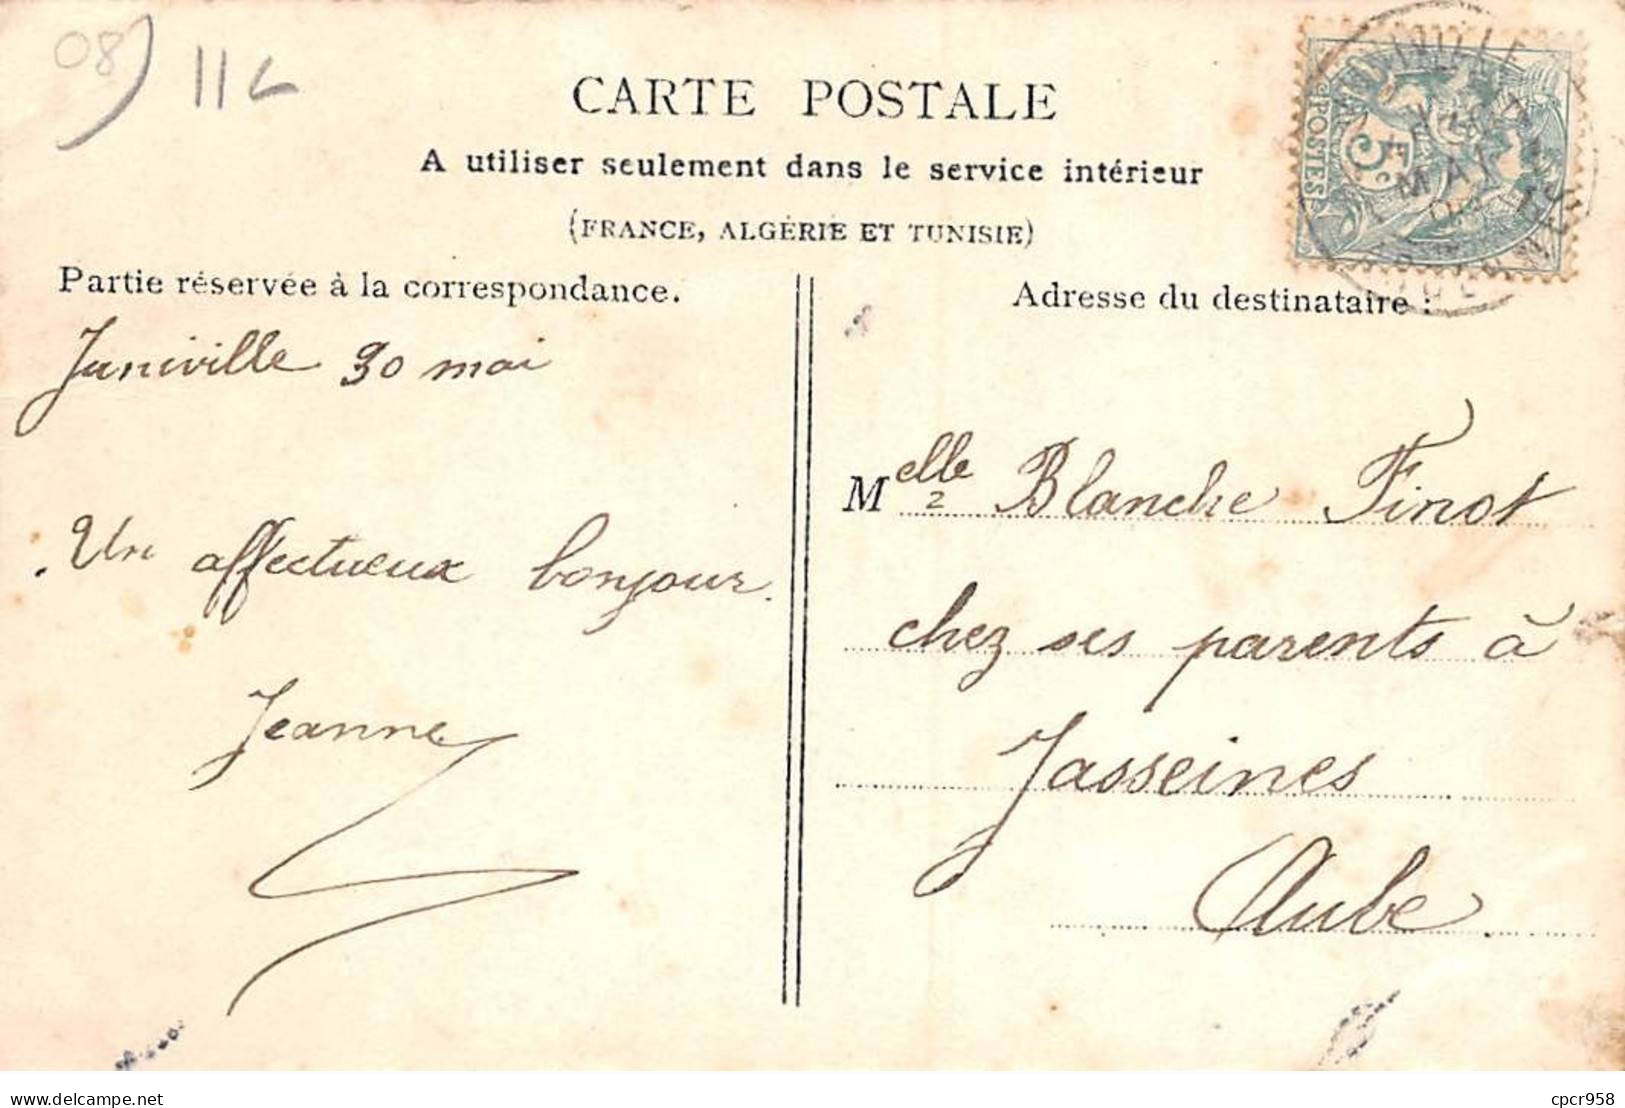 08)
11L
CARTE POSTALE
A utiliser seulement dans le service intérieur
(FRANCE, ALGÉRIE ET TUNISIE)
POSTES
5c
MAI
Partie réservée à la correspondance.
Juniville 30 mai
Un affectueux bonjour.
Jeanne
Adresse du destinataire :
Melle Blanche Finot
2
chez ses parents à
Jasseines
Aube
delcampe.net
cpcr958